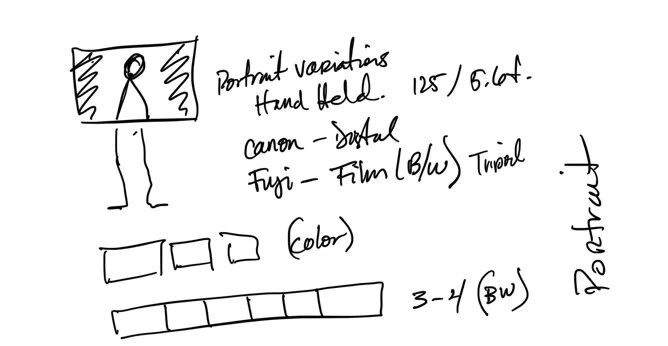 Portrait variations
Hand Held. 125/5.6f.
Canon – Digital
Fuji – Film (B/W) Tripod
(Color)
3-4 (BW)
Portrait